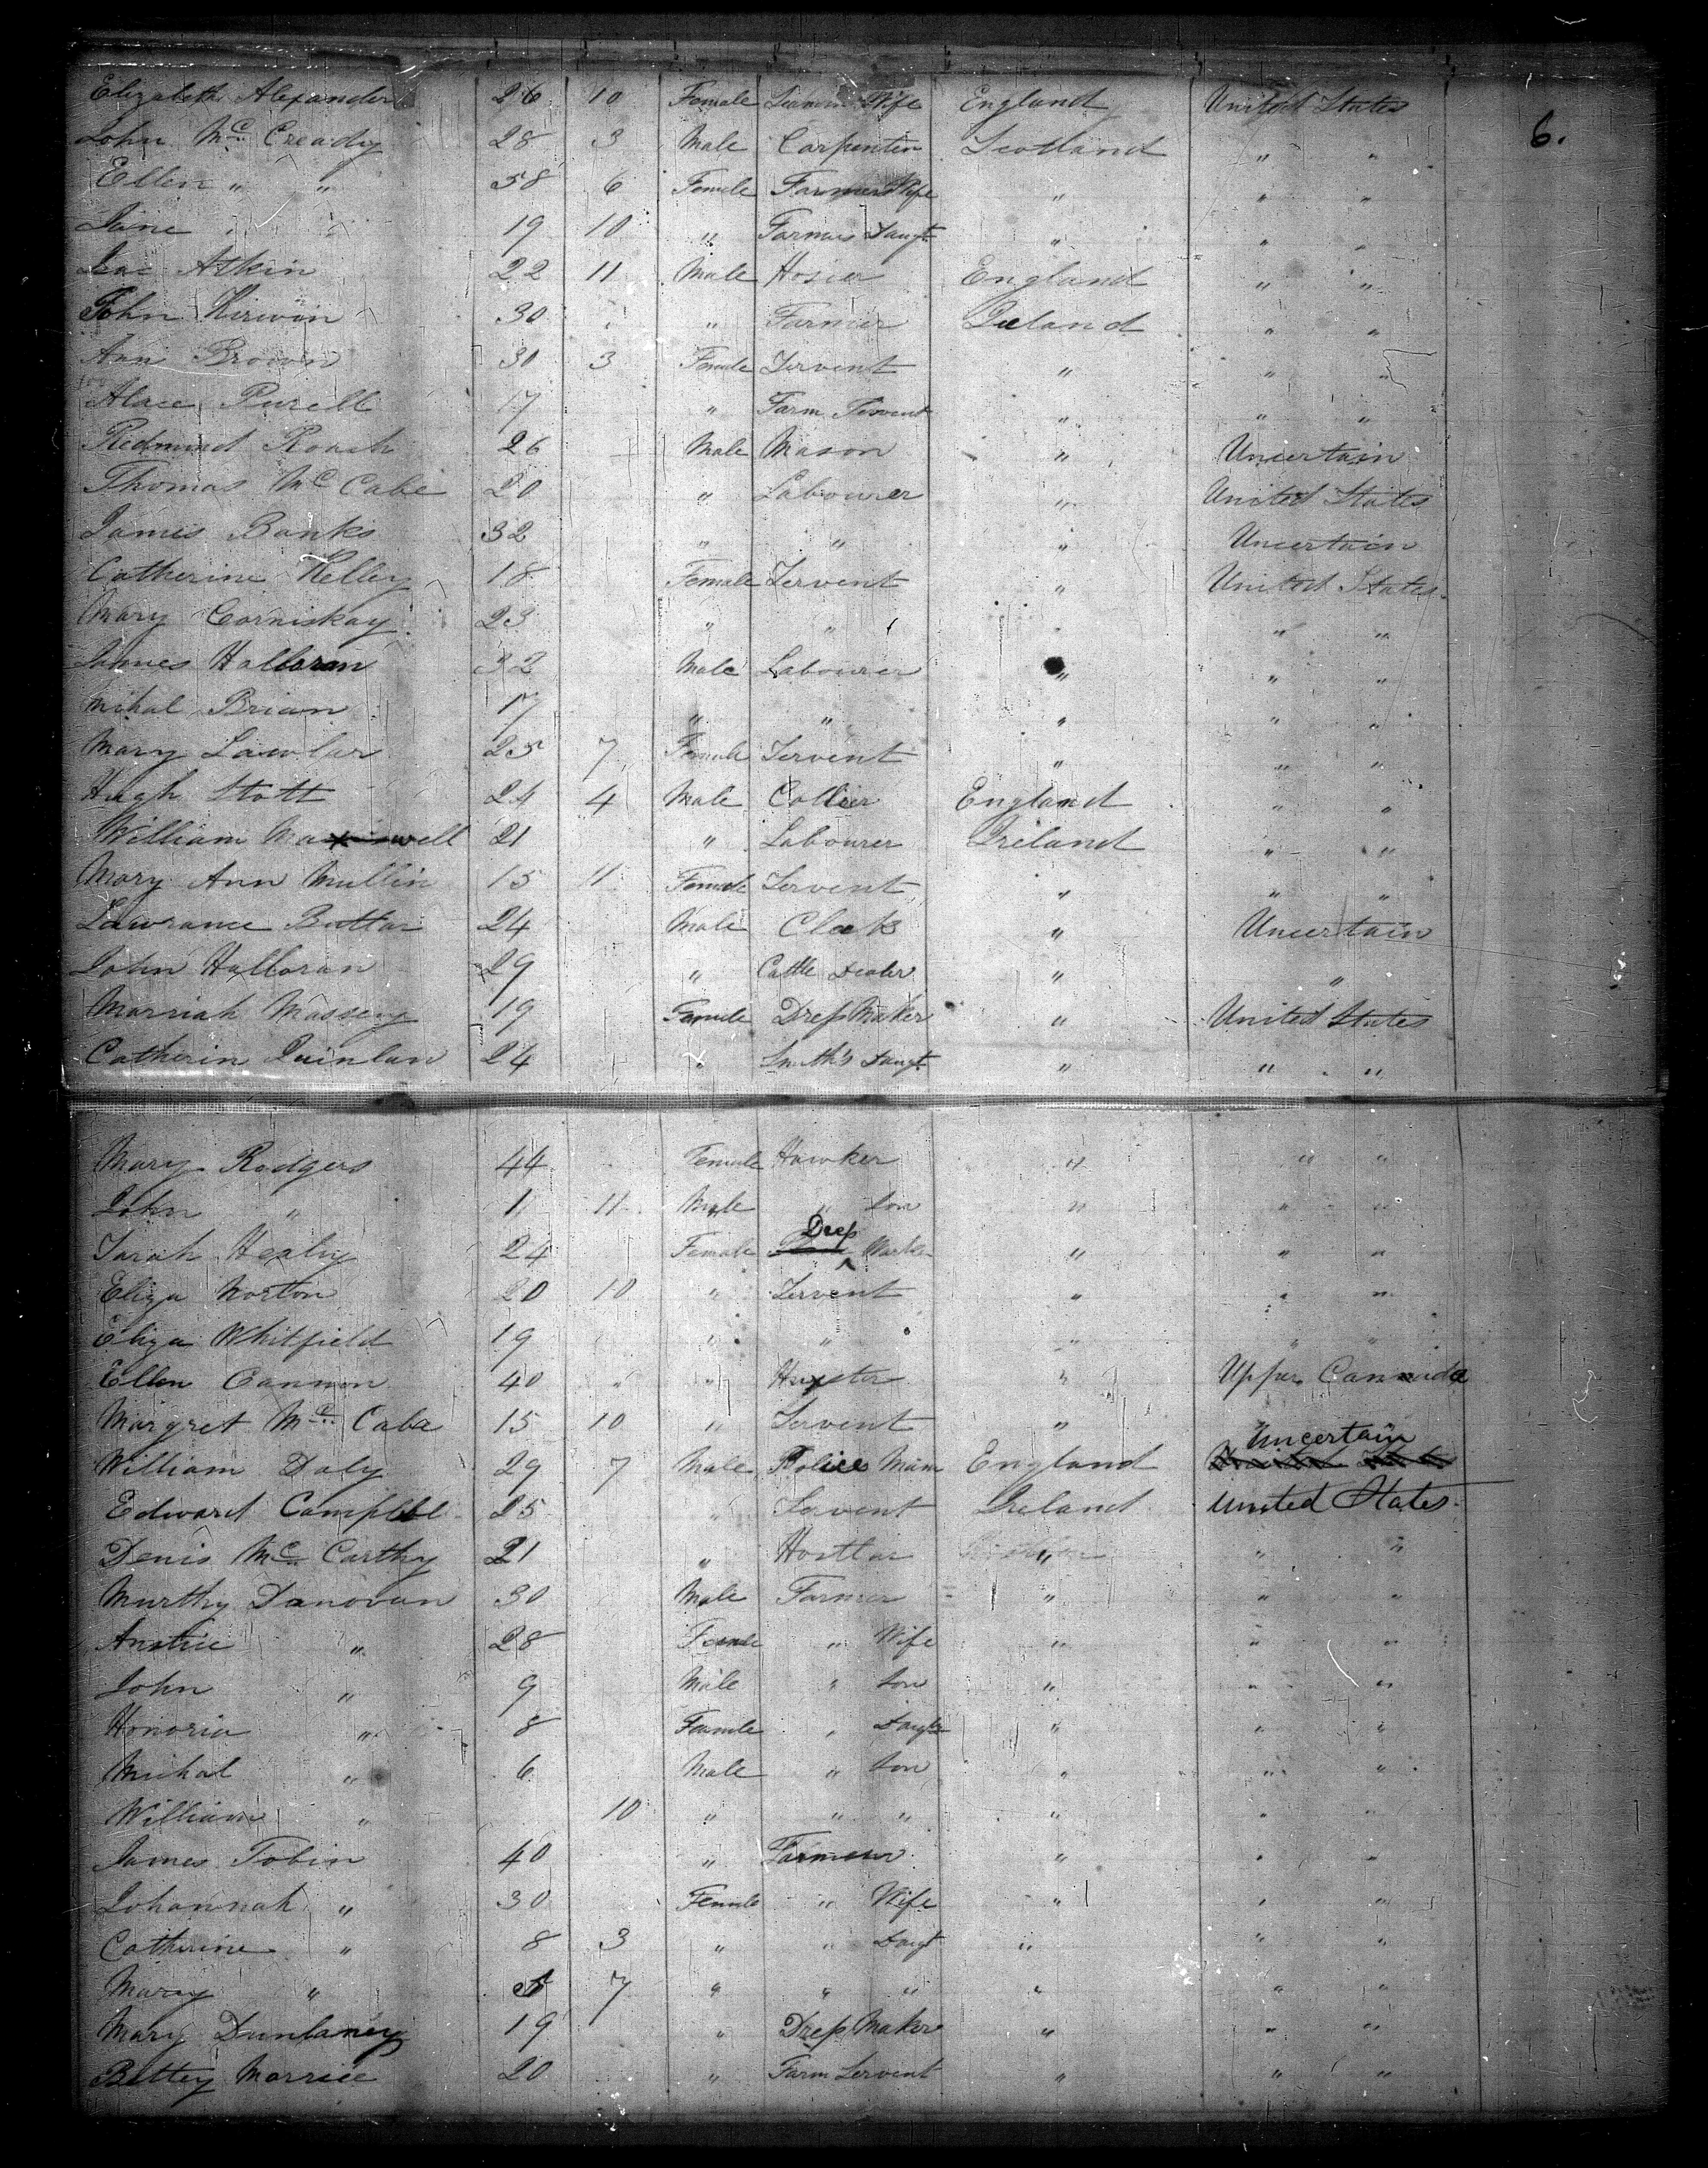 Elizabeth Alexander 26 10 Female Wife England United States
6.
John Mc Cready 28 3 Male Carpenter Scotland " "
Ellen " " 58 6 Female Farmers Wife " " "
Jane " " 19 10 " Farmers Daugt " " "
Isac Atkin 22 11 Male Hosier England " "
John Kirwin 30 " " Farmer Ireland " "
Ann Brown 30 3 Female Servent " " "
Alace Purell 17 " Farm Servent " " "
Redmund Roach 26 Male Mason " Uncertain
Thomas Mc Cabe 20 " Labourer " United States
James Banks 32 " " " Uncertain
Catherine Kelley 18 Female Servent " United States
Mary Corniskay 23 " " " " "
James Halloran 32 Male Labourer " " "
Mihal Brian 17 " " " " "
Mary Lawler 25 7 Female Servent " " "
Hugh Stott 24 4 Male Collier England " "
William Maxwell 21 " Labourer Ireland " "
Mary Ann Mullin 15 11 Female Servent " " "
Lawrance Buttar 24 Male Clark " Uncertain
John Halloran 29 " Cattle Dealer " "
Marriah Massey 19 Female Dress Maker " United States
Catherin Quinlan 24 " Smith's Daugt " " "
Mary Rodgers 44 Female Hawker " " "
John " 1 11 Male " Son " " "
Sarah Healy 24 Female Dress Maker " " "
Eliza Norton 20 10 " Servent " " "
Eliza Whitfield 19 " " " " "
Ellen Cannon 40 " " Huxter " Upper Cannida
Margret Mc Cabe 15 10 " Servent "
William Daly 29 7 Male Police Man England Uncertain
Edward Campbll 25 " Servent Ireland United States
Denis Mc Carthy 21 " Hostlar " " "
Murthy Donovan 30 Male Farmer " " "
Anstice " 28 Female " Wife " " "
John " 9 Male " Son " " "
Honoria " 8 Female " Daugtr " " "
Michal " 6 Male " Son " " "
William " 10 " " " " " "
James Tobin 40 " Farmer " " "
Johannah " 30 Female " Wife " " "
Catherine " 8 3 " " Daugt " " "
Mary " 7 " " " " " "
Mary Dunlaney 19 " Dress Maker " " "
Bettey Morrice 20 " Farm Servent " " "